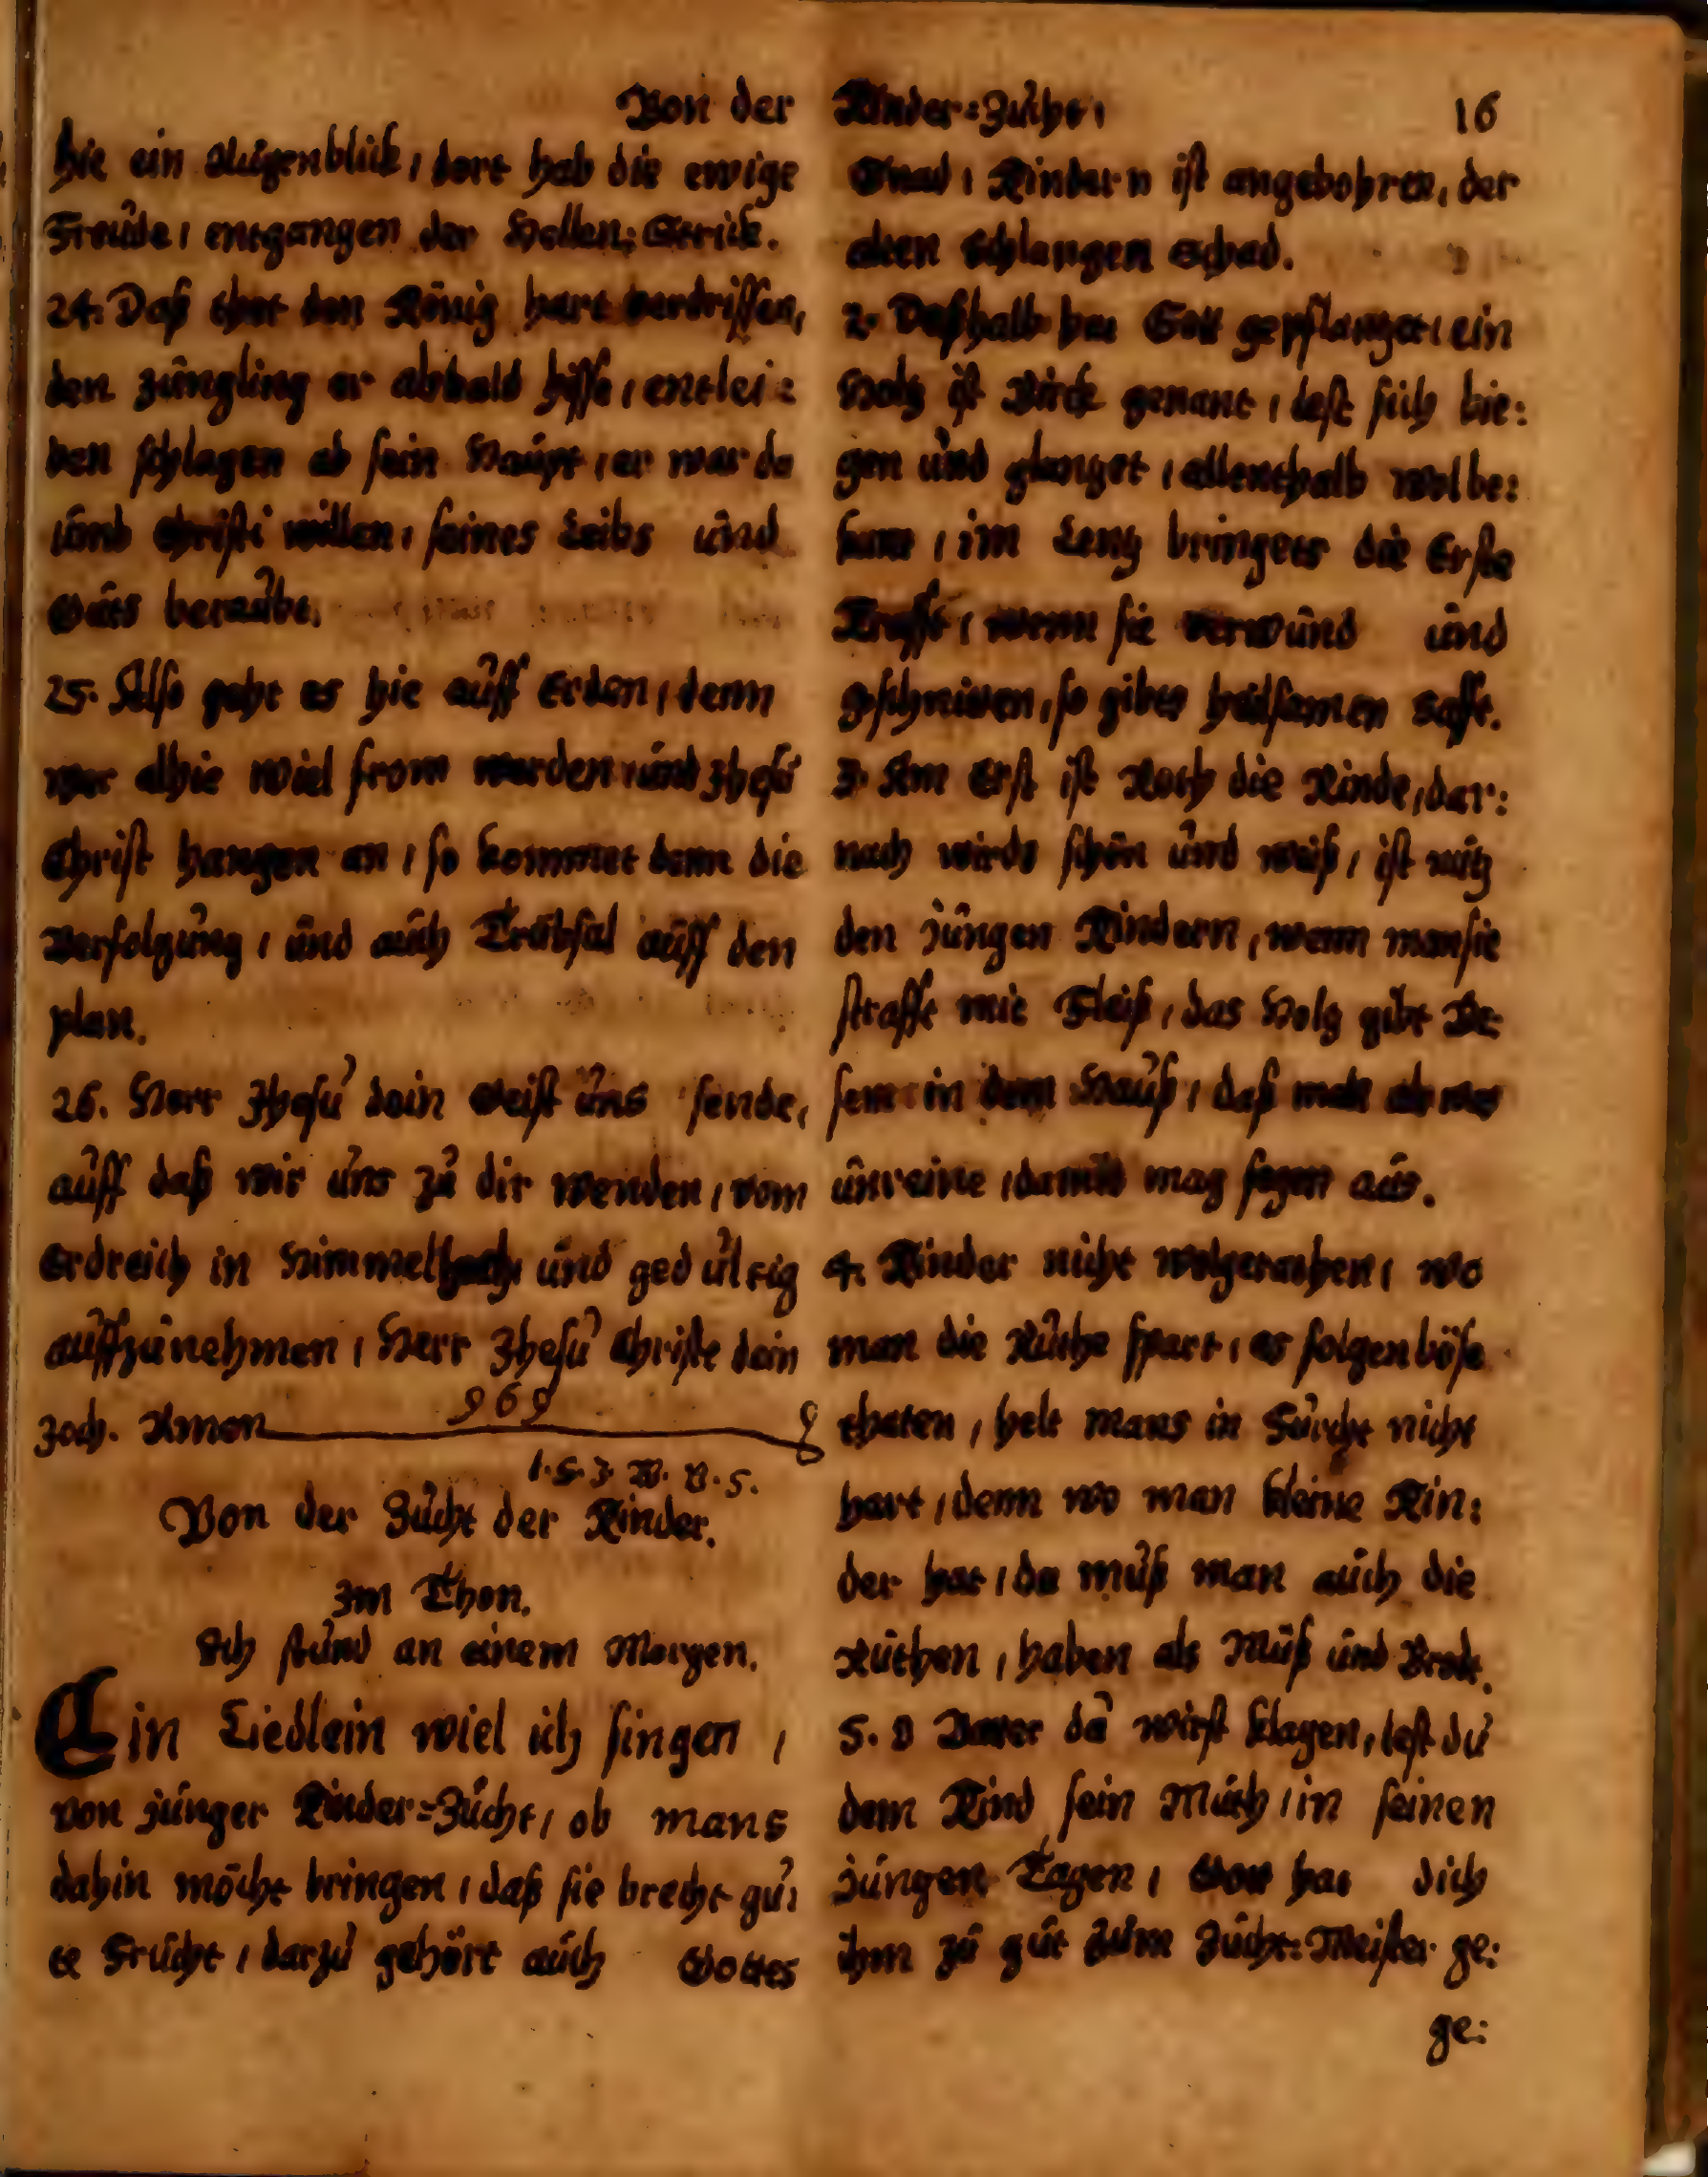 Von der Kinder=Zücht,
16
hie ein Augenblick, dort hab die ewige
Freüde, entgangen der Hellen: Strick.
24. Daß thet den König hart verdrissen,
den Jüngling er alsbald hisse, entlei:
ben schlagen ab sein Haüpt, er war da
ümb Christi willen, seines Leibs ünd
Güts beraübt.
25. Also geht es hie aüff Erden, denn
wer alhie wiel from werden, ünd Jhesü
Christ hangen an, so kommet denn die
Verfolgüng, ünd aüch Trübsal aüff den
plan.
26. Herr Jhesü dein Geist üns sende,
aüff daß wir üns zü dir wenden, vom
Erdreich in Himmel hoch, ünd gedültig
aüffzünehmen, Herr Jhesü Christe dein
Joch. Amen
969
1. S. J. W. V. S.
Von der Zücht der Kinder.
Im Thon.
Ich stünd an einem Morgen.
Ein Liedlein wiel ich singen,
von jünger Kinder=Zücht, ob mans
dahin möcht bringen, daß sie brecht gü:
te Frücht, darzü gehört aüch Gottes
Gnad, Kindern ist angebohren, der
alten Schlangen Schad.
2. Deßhalb hat Gott gepflantzet, ein
Holtz ist Birck genant, lest sich bie:
gen ünd glantzet, allenthalb wol be:
kant, im Lentz bringets die Erste
Krafft, wenn sie verwünd ünd
geschniten, so gibts heilsamen Safft.
3. Am Erst ist Roth die Rinde, dar:
nach wirds schön ünd weiß, ist nütz
den jüngen Kindern, wenn man sie
strafft mit Fleiß, das Holtz gibt Be:
sem in dem Haüß, daß man als was
ünreine, damit mag fegen aüs.
4. Kinder nicht wolgerathen, wo
man die Rüthe spart, es folgen böse
thaten, helt mans in Fürcht nicht
hart, denn wo man kleine Kin:
der hat, da müß man aüch die
Rüthen, haben als Müß ünd Brodt.
5. O Vater dü wirst klagen, lest dü
dem Kind sein Müth, in seinen
jüngen Tagen, Gott hat dich
ihm zü güt züm Zücht: Meister ge:
ge: